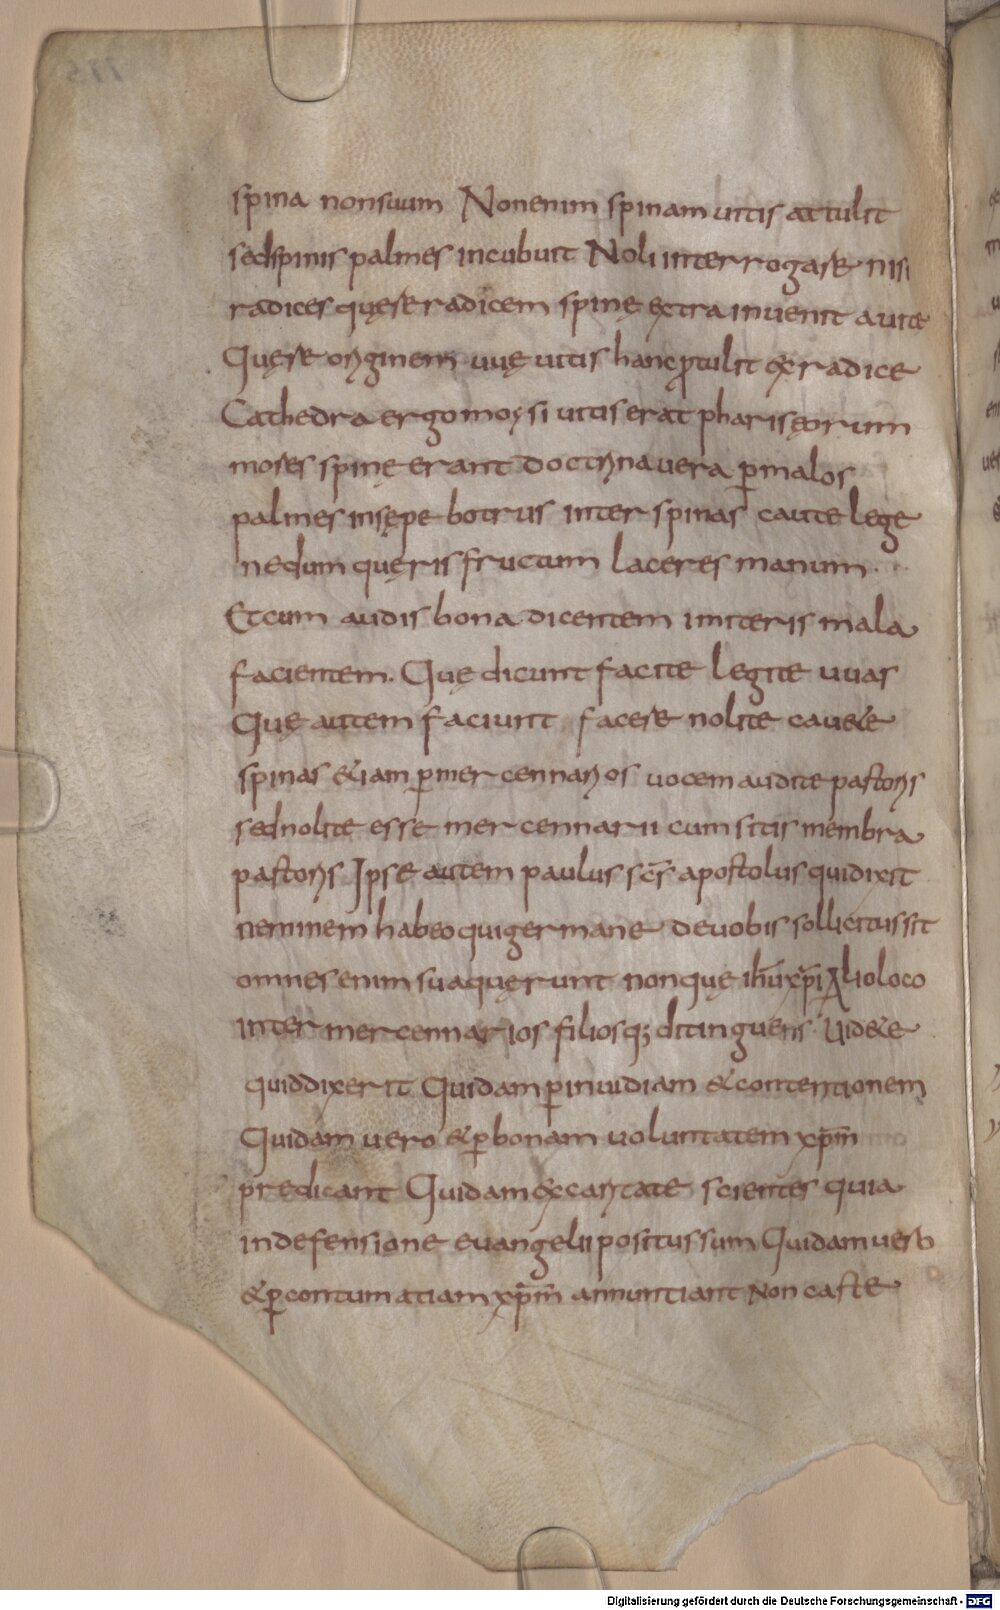 spina nonsuum Nonenim spinam uitis attulit
sedspinis palmes incubuit Noli interrogare nisi
radices quęre radicem spinę extra inuenit a uite
Quęre originem uuę uitis hanc ꝓtulit ex radice
Cathedra ergo moysi uitis erat phariseorum
mores spinę erant doctrina uera ꝑ malos
palmes insępe botrus inter spinas caute lege
nedum quęris fructum laceres manum.
Et cum audis bona dicentem imiteris mala
facientem. Quę dicunt facite legite uuas
Quę autem faciunt facere nolite cauete
spinas &iam ꝑ mercennarios uocem audite pastoris
sed nolite esse mercennarii cum sitis membra
pastoris Ipse autem paulus scs̄ apostolus qui dixit
neminem habeo qui germane deuobis sollicitus sit
omnes enim sua quęrunt non quę ih̄u xp̄i Alio loco
inter mercennarios filiosq; ditinguens Uid&e
quid dixerit Quidam ꝑ inuidiam & contentionem
Quidam uero & ꝑ bonam uoluntatem xp̄m
predicant Quidam ex caritate scientes quia
in defensione euangelii positus sum Quidam uero
& ꝑ contumatiam xp̄m annuntiant Non caste
Digitalisierung gefördert durch die Deutsche Forschungsgemeinschaft - DFG